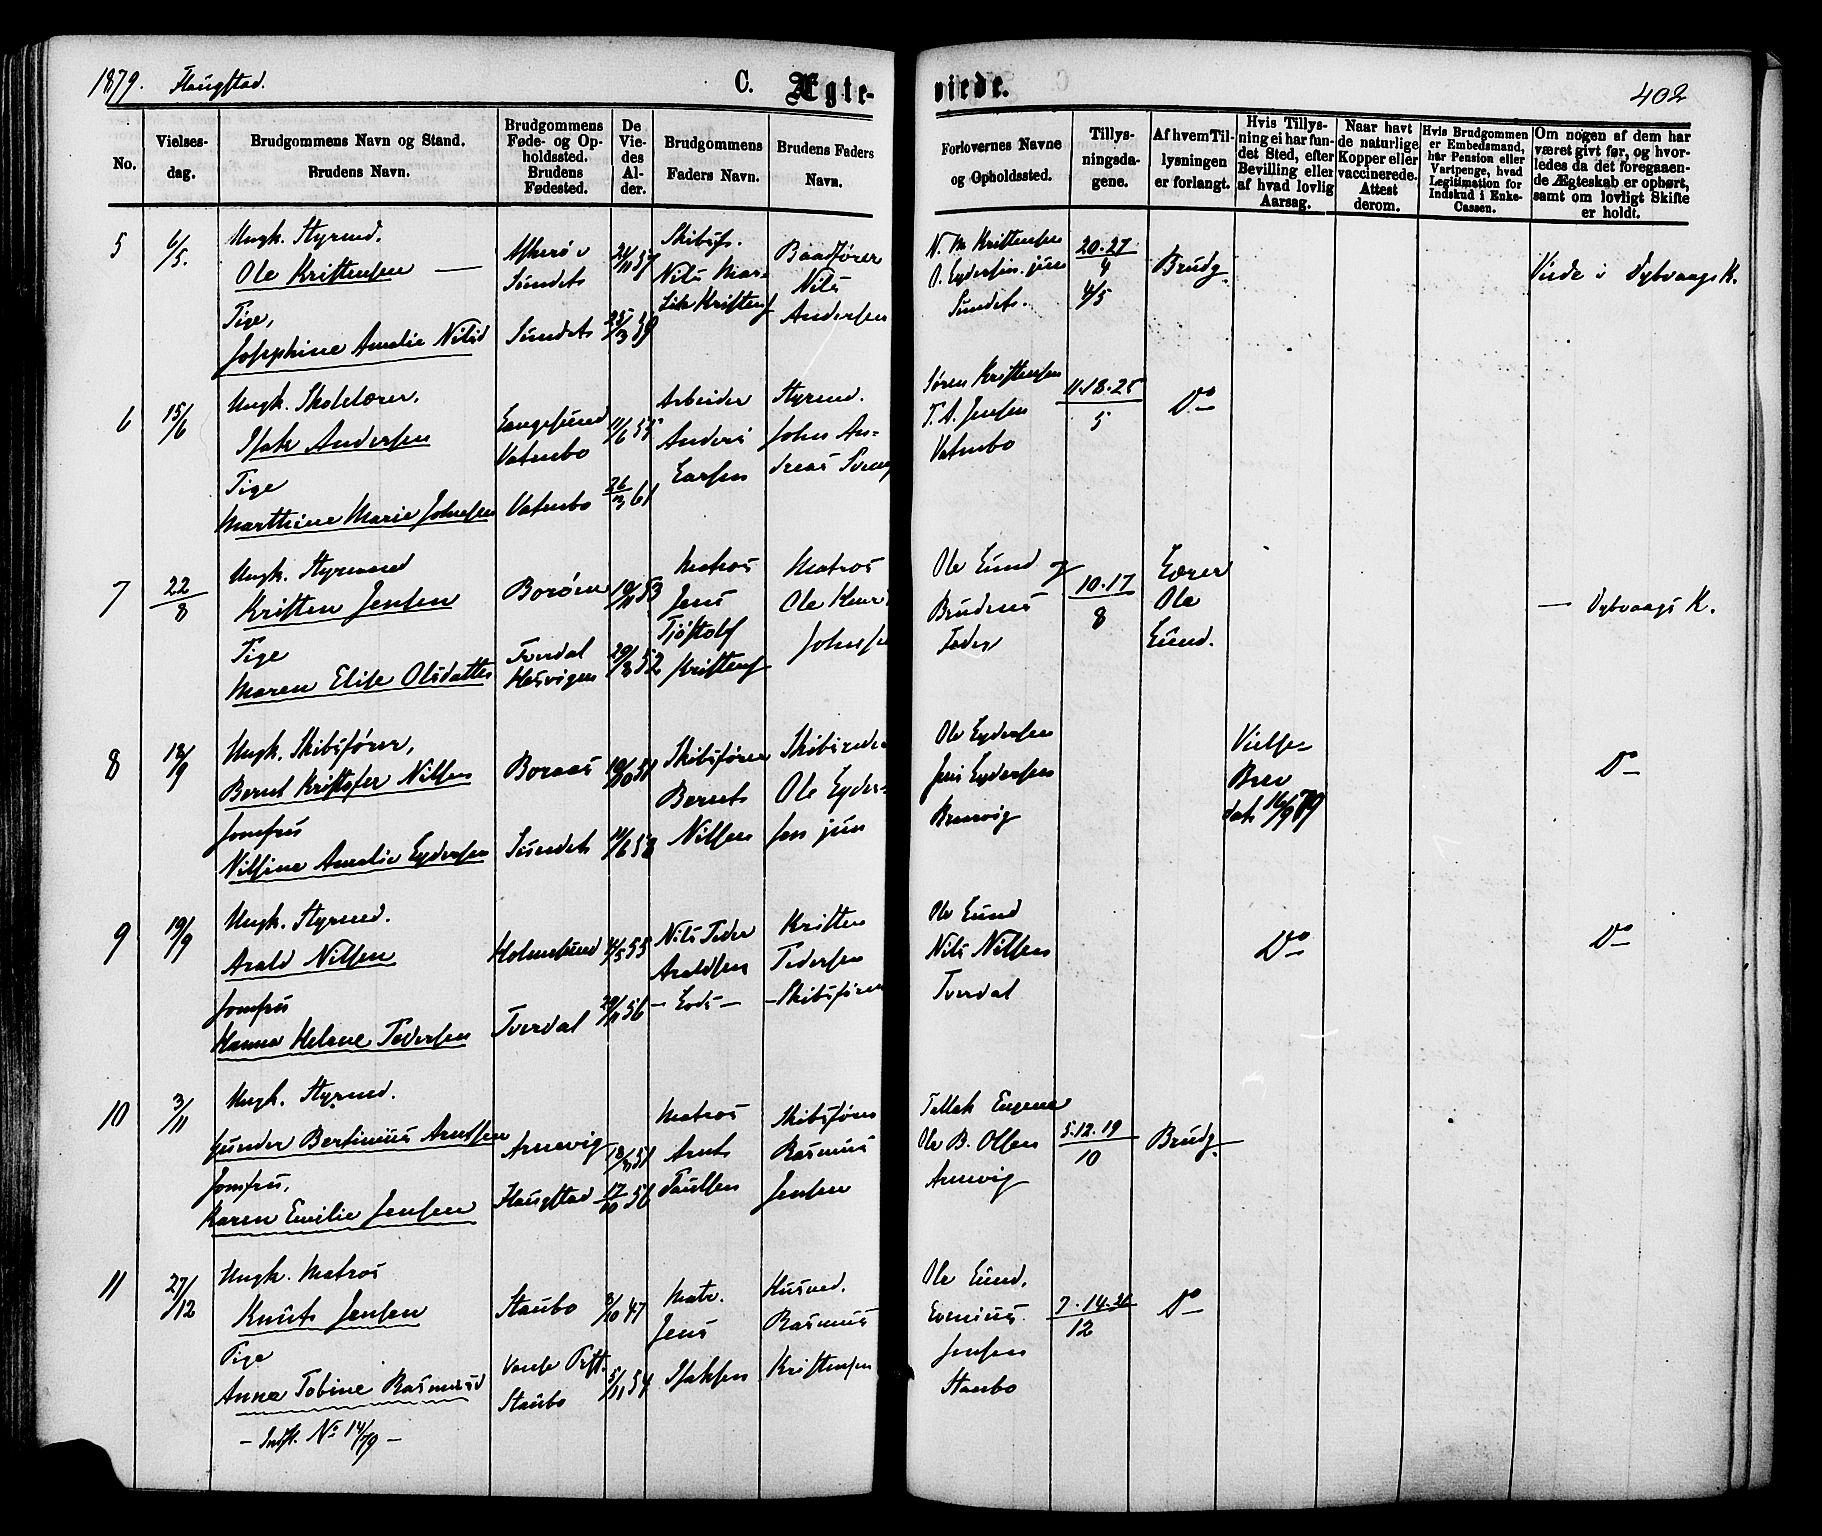 1879. Flangstad.
C. Ægte-
viede.
402
No.
Vielses-
dag.
Brudgommens Navn og Stand.
Brudens Navn.
Brudgommens
Føde- og Op-
holdssted.
Brudens
Fødested.
De
Vie-
des
Al-
der.
Brudgommens
Faders Navn.
Brudens Faders
Navn.
Forlovernes Navne
og Opholdssted.
Tillys-
ningsda-
gene.
Af hvem Til-
lysningen
er forlangt.
Hvis Tillys-
ning ei har fun-
det Sted, efter
Bevilling eller
af hvad lovlig
Aarsag.
Naar havt
de naturlige
Kopper eller
vaccinerede.
Attest
derom.
Hvis Brudgommen
er Embedsmand,
har Pension eller
Vartpenge, hvad
Legitimation for
Indskud i Enke-
Cassen.
Om nogen af dem har
været givt før, og hvor-
ledes da det foregaaen-
de Ægteskab er ophørt,
samt om lovligt Skifte
er holdt.
5
6/5.
Ungk. Styrmd.
Ole Kristensen
Pige,
Josephine Amalie Nilsd
Sundet
Sundet
24/11 57
25/3 59
Skibsf.
Nils Mar-
Kristens
Baadfører
Nils
Andersen
N. M Kristensen
O. Eydersen. jun
Sundet.
20.27
4
4/5
Brudg.
Viede i Dybvaags K.
6
15/6
Ungk. Skolelærer,
Isak Andersen
Pige
Marthine Marie Johnsen
Langesund
Vatnebo
Vatnebo
11/6 55
26/3 61
Arbeider
Anders
Larsen
Styrmd.
John An-
dreas
Søren Kristensen
T. A. Jensen
Vatnebo
11.18.25
5
Do
7
22
8
Ungk. Styrmand
Kristen Jensen
Pige
Maren Elise Olsdatter
Borøen
Tverdal
Hesvigen
19/11 53
29/8 52
Matros
Jens
Tjøstolf
Kristens
Matros
Ole Knut
Johnsen
Ole Lund
Brudens
Fader
10.17
8
Lærer
Ole
Lund.
— Dybvaags K.
8
18/9
Ungk. Skibsfører,
Bernt Kristofer Nilsen
Jomfru
Nilsine Amalie Eydersen
Boraas
Sundet
19/10 51
11/6 58
Skibsfører
Bernt
Nilsen
Skibsreder
Ole Eyder-
sen jun
Ole Eydersen
Jens Eydersen
Krnevig
Vielse-
Brev
dat. 16/9 79
Do
9
19/9
Ungk. Styrmd.
Arald Nilsen
Jomfru
Hanna Helene Pedersen
Holmesund
Tverdal
4/5 55
29/11 56
Nils Peder
Araldsen
— Lods —
Kristen
Pedersen
— Skibsfører
Ole Lund
Nils Nilsen
Tverdal
Do
Do
10
3/11
Ungk. Styrmd.
Gunder Bertinius Arntsen
Jomfru,
Karen Emilie Jensen
Arnevig
Flangstad
17/10 56
Matros
Arnt
Paulsen
Skibsfører
Rasmus
Jensen
Tellak Eugene
Ole B. Olsen
Arnevig
5.12.19
10
Brudg.
11
27/12
Ungk. Matros
Knut Jensen
Pige
Anne Tobine Rasmusd
— Indfl. No 14/79 —
Staubo
Staubo
3/10 47
5/11 54
Matr.
Jens
Isaksen
Husmd.
Rasmus
Kristensen
Ole Lund.
Evenius.
Jensen
Staubo
7.14.21
12
Do